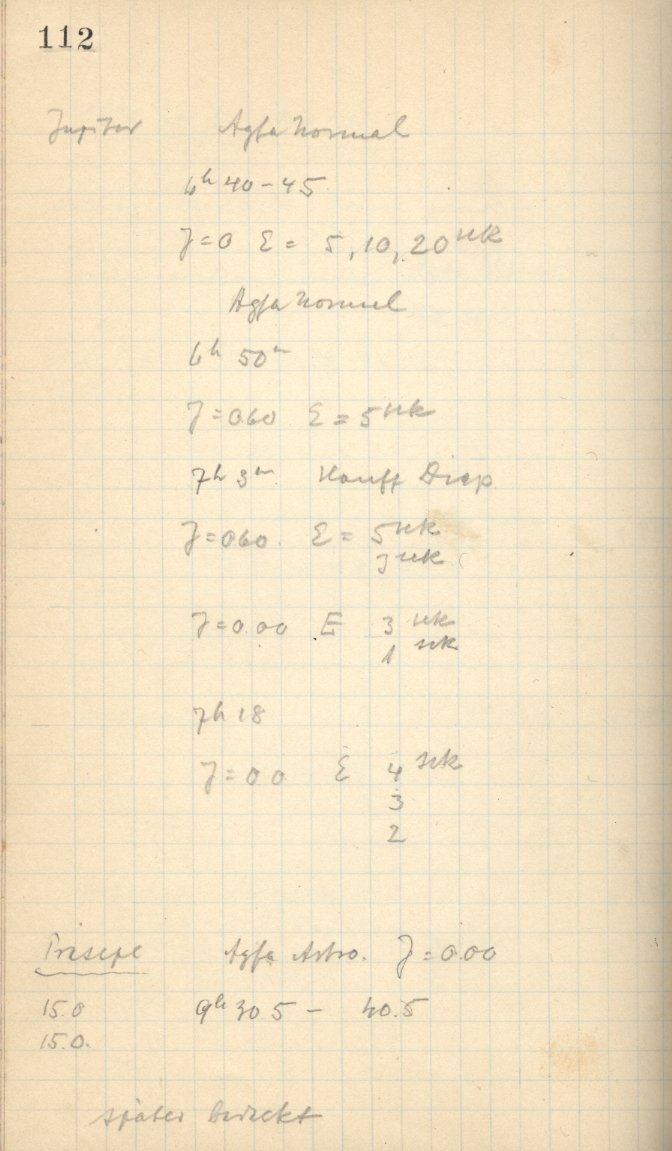 112
Jupiter Agfa Normal
6h 40-45
J=0 E = 5, 10, 20 sek
Agfa Normal
6h 50m
J=0.60 E = 5 sek
7h 3m Hauff Diap
J=0.60. E = 5 sek
3 sek
J=0.00 E 3 sek
1 sek
7h 18
J=0.0 E 4 sek
3
2
Präsepe Agfa Astro. J=0.00
15.0 9h 30.5 - 40.5
15.0.
später bedeckt